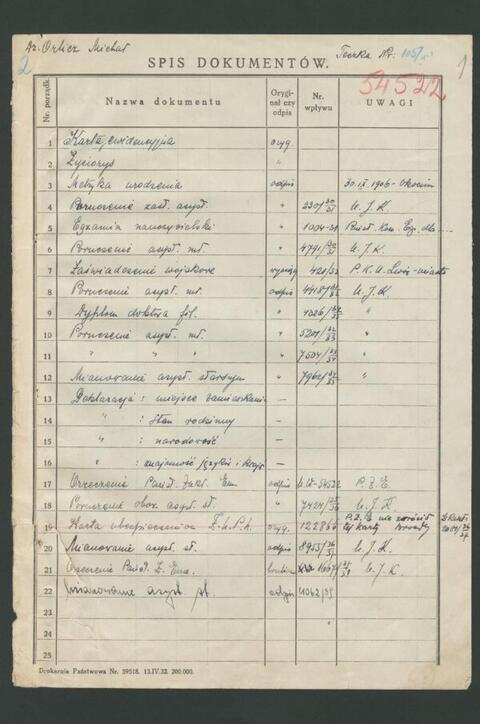 Dr. Orlicz Michał
Teczka Nr. 105/
2
1
SPIS DOKUMENTÓW.
54522
Nr. porządk.
Nazwa dokumentu
Orygi-
nał czy
odpis
Nr.
wpływu
UWAGI
1 Karta ewidencyjna oryg.
2 Życiorys "
3 Metryka urodzenia odpis 30.IX.1906 - Okocim
4 Poruczenie zast. asyst. " 230/30/31 U. J. K.
5 Egzamin nauczycielski " 1004-31 Państ. Kom. Egz. dla
6 Poruczenie asyst. mł. " 4791/30/31 U. J. K.
7 Zaświadczenie wojskowe wyciąg 420/32 P. K. U. Lwów-miasto
8 Poruczenie asyst. mł. odpis U. J. K.
9 Dyplom doktora fil. " "
10 Poruczenie asyst. mł. " 5201/32/33
11 " " " " 7504/33/34 "
12 Mianowanie asyst. starszym " 7962/ "
13 Deklaracja : miejsce zamieszkania —
14 " : Stan rodzinny —
15 " : narodowość —
16 " : znajomość języków i kraju —
17 Orzeczenie Państ. Zakł. Em. odpis 54522 P. Z. E.
18 Poruczenie obow. asyst. st. " 7424/ U. J. K.
19 Karta ubezpieczeniowa Z.U.P.U. oryg. 122864 P.Z.E. nie zwrócił
tej karty
20 Mianowanie asyst. st. odpis 8955/ U. J. K.
21 Orzeczenie Państ. Z. Em. U. J. K.
22 Mianowanie asyst. st. odpis
23
24
25
Drukarnia Państwowa Nr. 39518. 13.IV.32. 200.000.